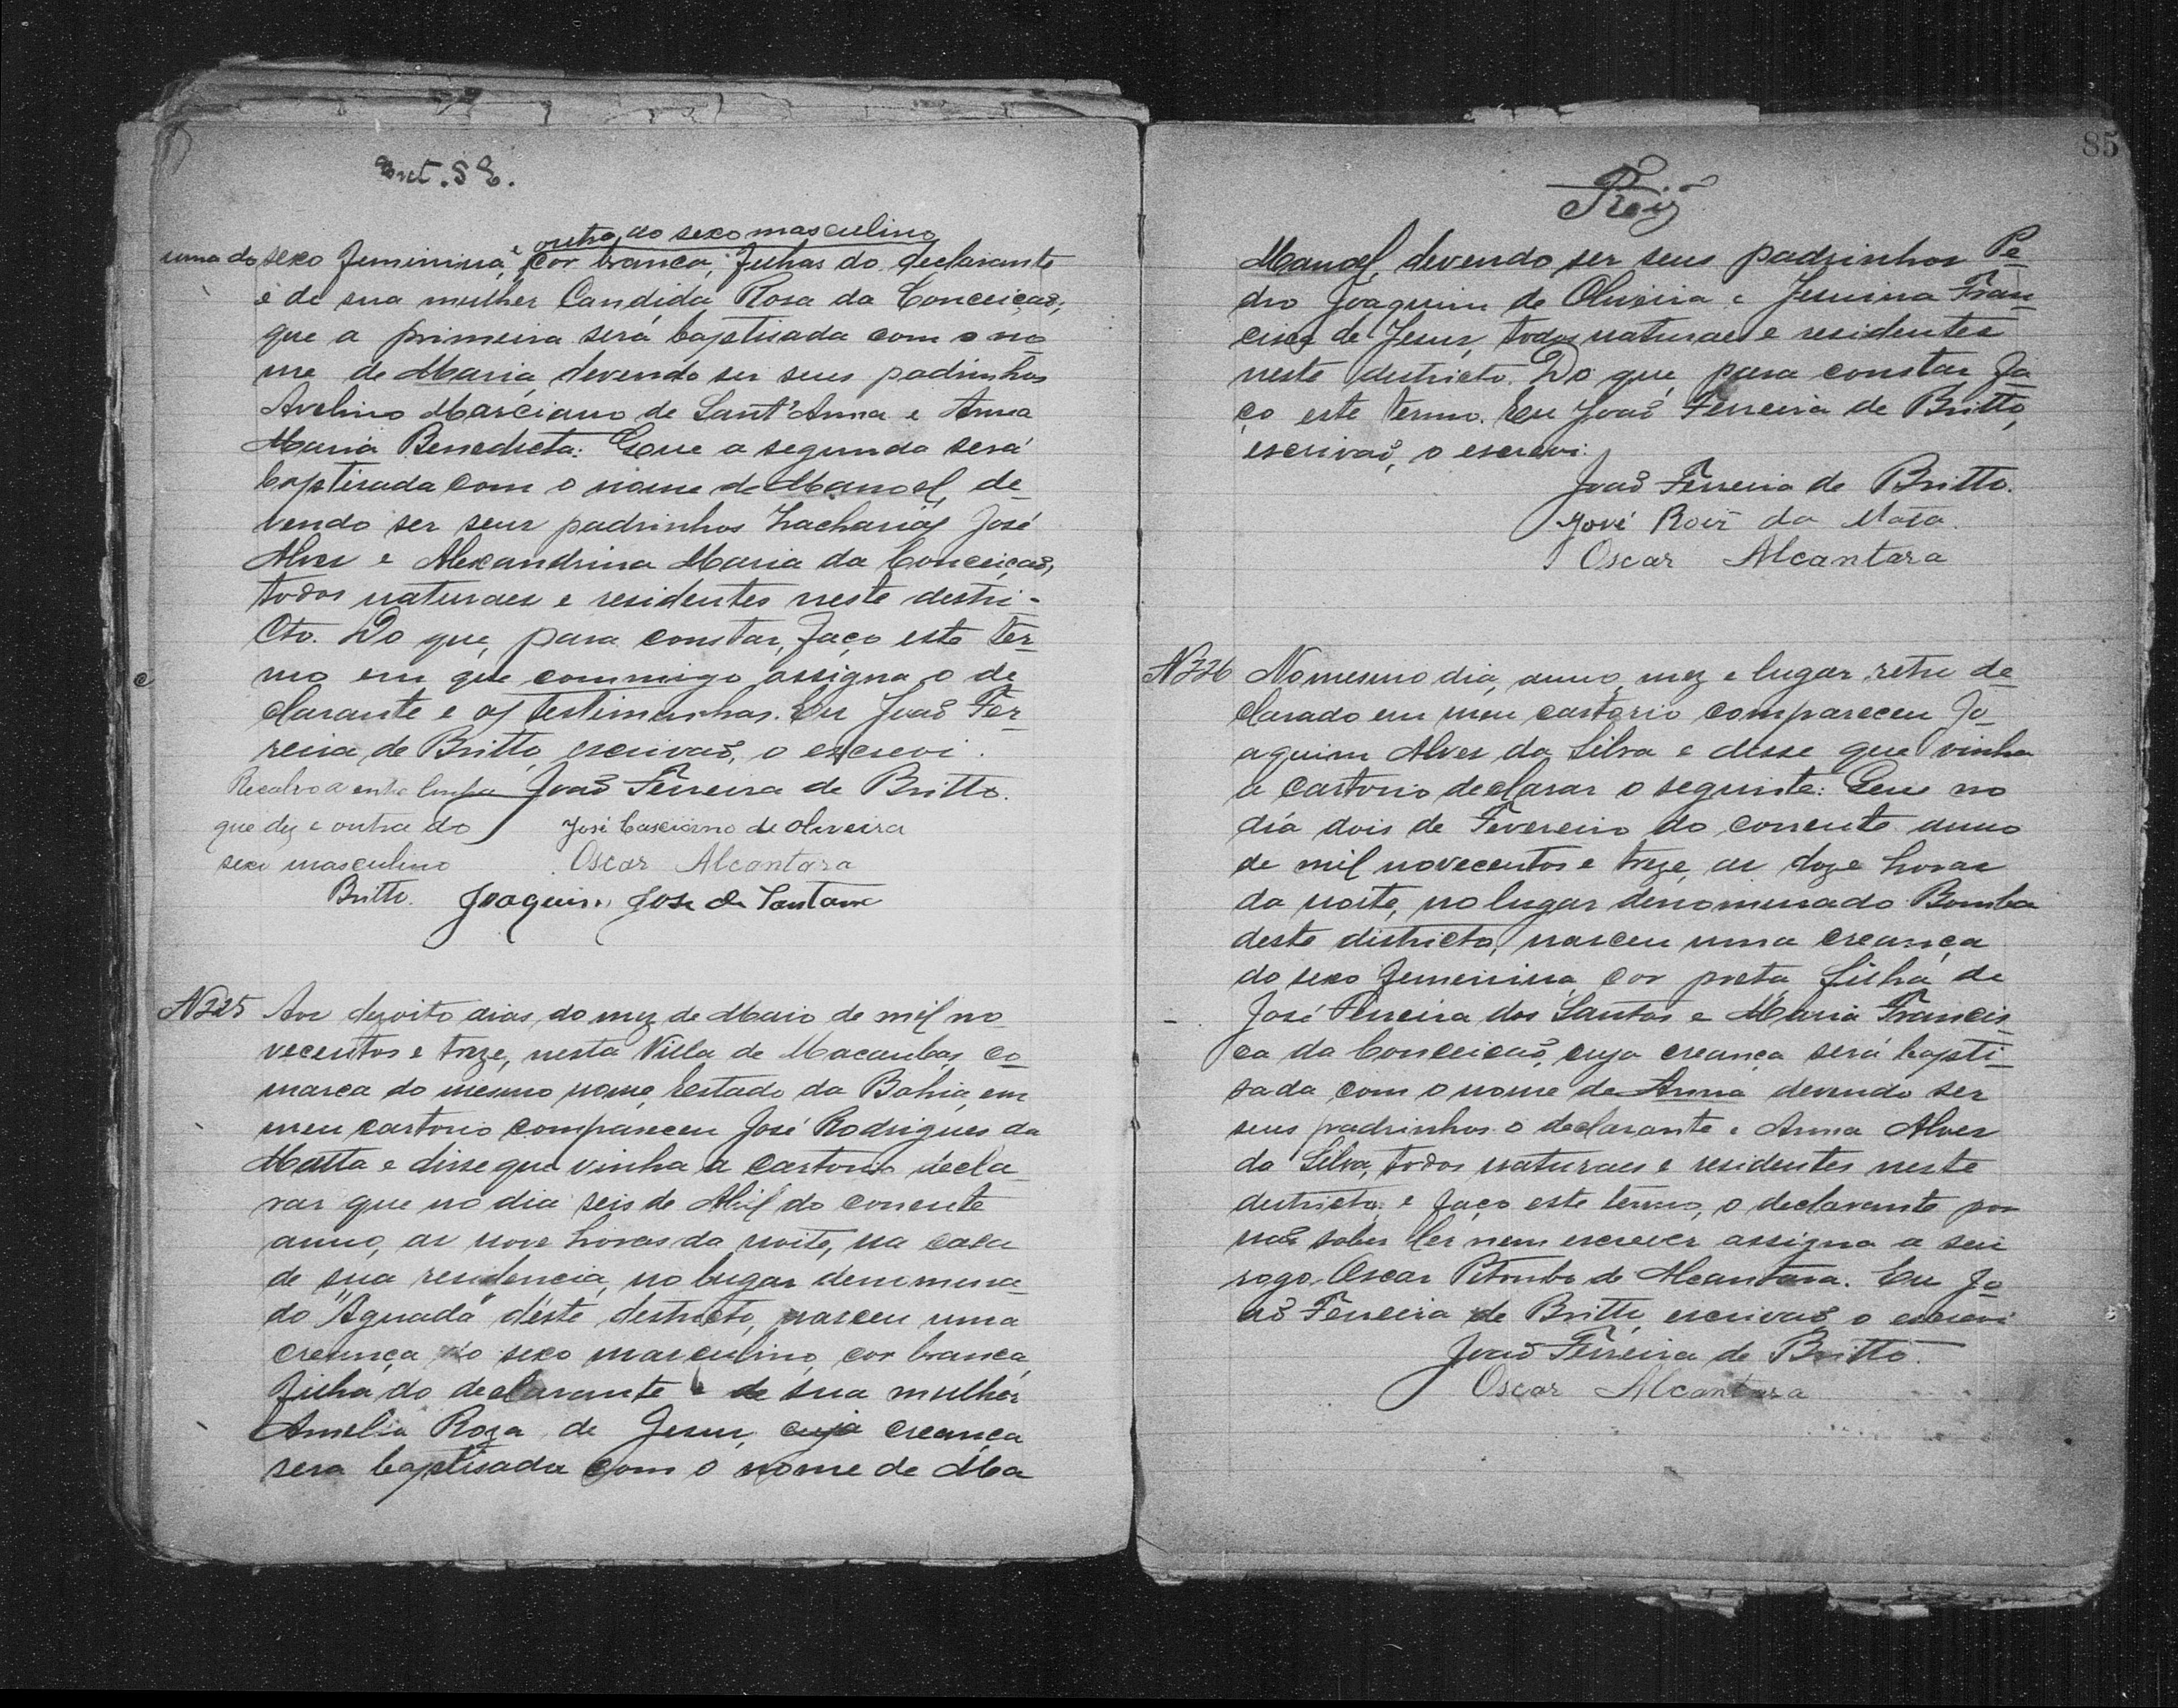 outra do sexo masculino
uma do sexo feminina, e cor branca, filhas do declarante
e de sua mulher Candida Rosa da Conceiçaõ,
que a primeira será baptisada com o no
me de Maria devendo ser seus padrinhos
Avelino Marciano de Sant'Anna e Anna
Maria Benedicta: Que a segunda será
baptisada com o nome de Manoel, de
vendo ser seus padrinhos Zacharias José
Alves e Alexandrina Maria da Conceiçaõ,
todos naturaes e residentes neste destri-
cto. Do que, para constar, faço este ter
mo em que commigo assigna o de
clarante e as testimunhas. Eu Joaõ Fer
reira de Britto, escrivaõ, o escrevi.
Resalvo a entre linha Joaõ Ferreira de Britto.
que diz e outra do José Casciano de Oliveira
sexo masculino Oscar Alcantara
Britto. Joaquim Jose de Santana
N225 Aos dezoito dias do mez de Maio de mil no
vecentos e treze, nesta Villa de Macaubas, co
marca do mesmo nome, Estado da Bahia, em
meu cartorio compareceu José Rodrigues da
Matta e disse que vinha a cartorio decla
rar que no dia seis de Abril do corrente
anno, as nove horas da noite, na casa
de sua residencia, no lugar denomina
do "Aguada" deste destricto, nasceu uma
creança do sexo masculino, cor branca,
filha do declarante e de sua mulher
Amelia Roza de Jesus, cuja creança
sera baptisada com o nome de Ma
85
Roiz
Manoel, devendo ser seus padrinhos Pe
dro Joaquim de Oliveira e Jesuina Fran
cisca de Jesus, todos naturaes e residentes
neste destricto. Do que, para constar fa
ço este termo. Eu Joaõ Ferreira de Britto,
escrivaõ, o escrevi.
Joaõ Ferreira de Britto.
José Roiz da Mata.
Oscar Alcantara
N226 No mesmo dia, anno, mez e lugar retro de
clarado em meu cartorio compareceu Jo
aquim Alves da Silva e disse que vinha
a cartorio declarar o seguinte: Que no
dia dois de Fevereiro do corrente anno
de mil novecentos e treze, as doze horas
da noite, no lugar denominado Bomba
deste districto, nasceu uma creança
do sexo feminina, cor preta, filha de
José Ferreira dos Santos e Maria Francis
ca da Conceicaõ, cuja creança será bapti
sada com o nome de Anna devendo ser
seus padrinhos o declarante e Anna Alves
da Silva, todos naturaes e residentes neste
destricto, e faço este termo, o declarante por
naõ saber ler nem escrever assigna a seu
rogo Oscar Pitombo de Alcantara. Eu Jo
aõ Ferreira de Britto, escrivaõ, o escrevi
Joaõ Ferreira de Britto.
Oscar Alcantara